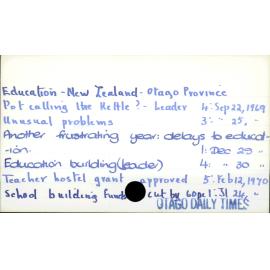 Education - New Zealand - Otago Province
Pot calling the Kettle? - Leader 4: Sep 22, 1969
Unusual problems 3: " 25, "
Another frustrating year: delays to educat-
-ion. 1: Dec 29 "
Education building (leader) 4: " 30 "
Teacher hostel grant approved 5: Feb 12, 1970
School building funds cut by 60pc 1: Jl 24, "
OTAGO DAILY TIMES